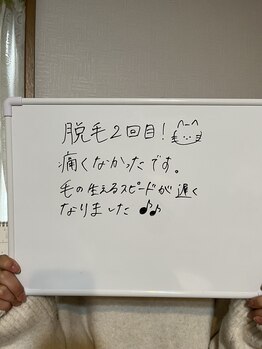 脱毛2回目!
痛くなかったです。
毛の生えるスピードが遅く
なりました♪♪